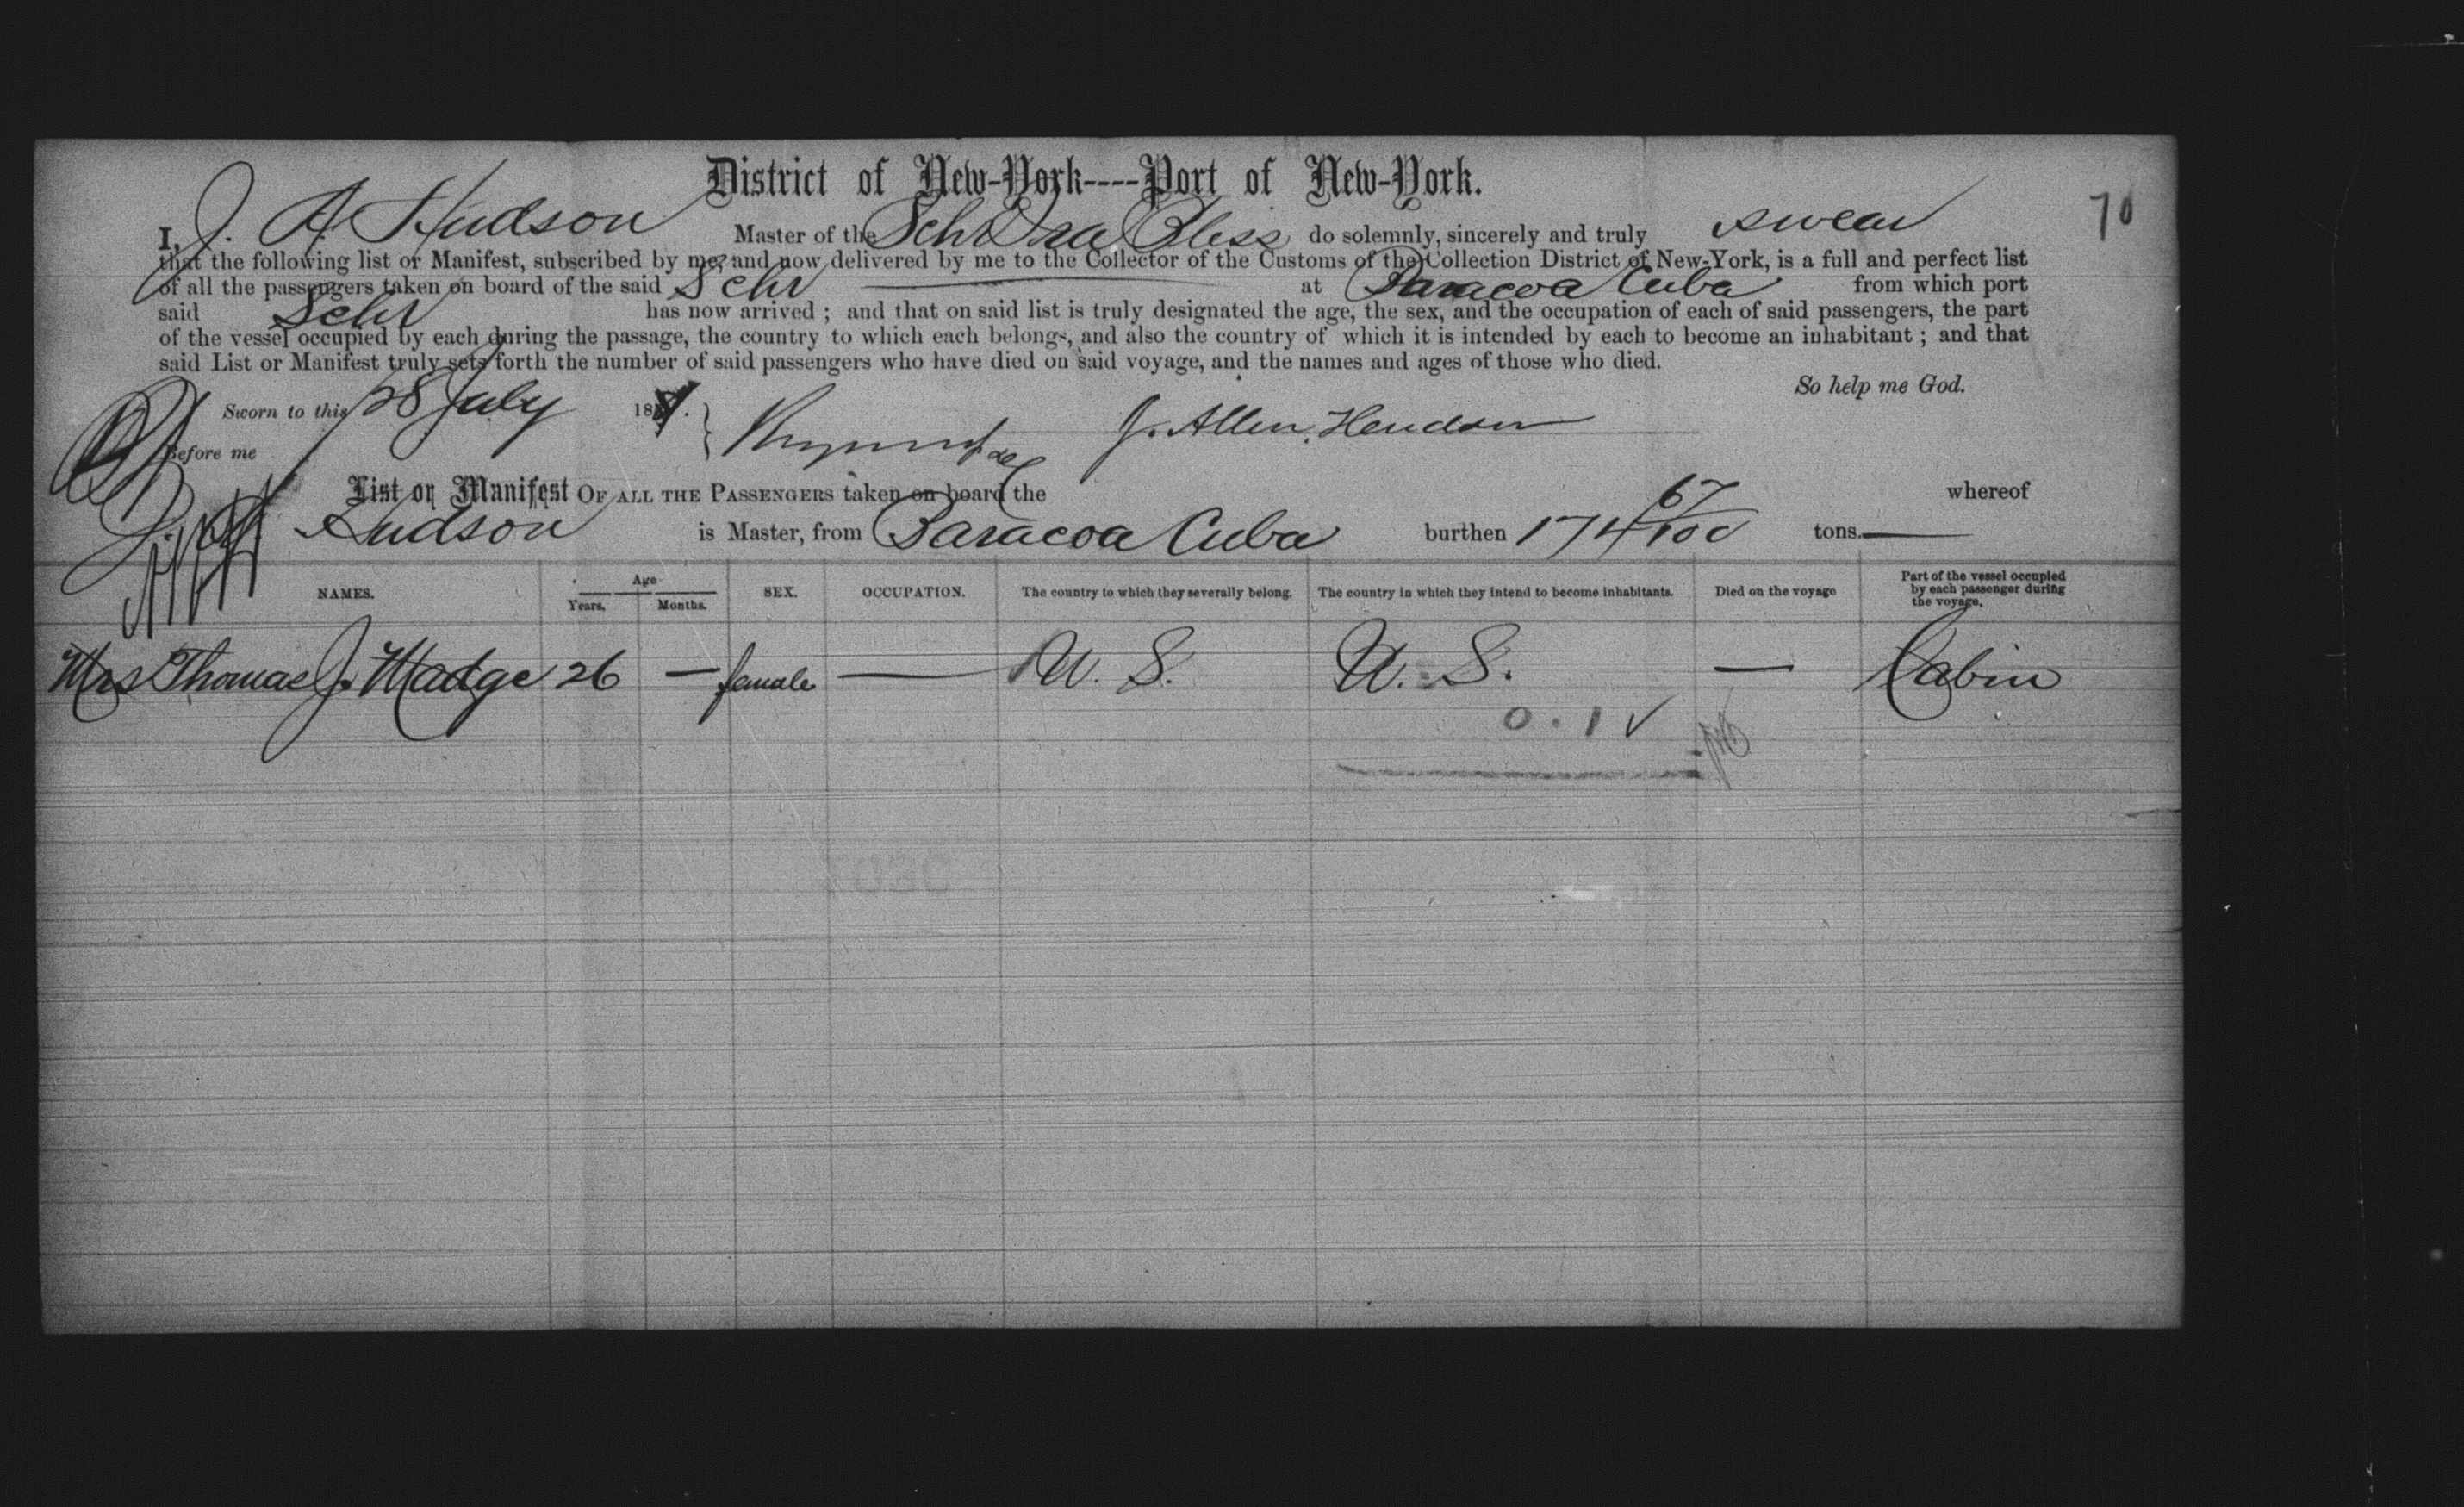 District of New-York----Port of New-York.
70
I, J. A. Hudson Master of the Schr Ira Bliss do solemnly, sincerely and truly swear
that the following list or Manifest, subscribed by me, and now delivered by me to the Collector of the Customs of the Collection District of New-York, is a full and perfect list
of all the passengers taken on board of the said Schr at Baracoa Cuba from which port
said Schr has now arrived ; and that on said list is truly designated the age, the sex, and the occupation of each of said passengers, the part
of the vessel occupied by each during the passage, the country to which each belongs, and also the country of which it is intended by each to become an inhabitant ; and that
said List or Manifest truly sets forth the number of said passengers who have died on said voyage, and the names and ages of those who died.
So help me God.
Sworn to this 28 July 18 J. Allen Hudson
Before me
List or Manifest OF ALL THE PASSENGERS taken on board the whereof
J. A. Hudson is Master, from Baracoa Cuba burthen 174 67/100 tons.
NAMES. Age Years. Months. SEX. OCCUPATION. The country to which they severally belong. The country in which they intend to become inhabitants. Died on the voyage Part of the vessel occupied by each passenger during the voyage.
Mrs Thomas J. Madge 26 — female — U. S. U. S. — Cabin
0 . 1 ✓